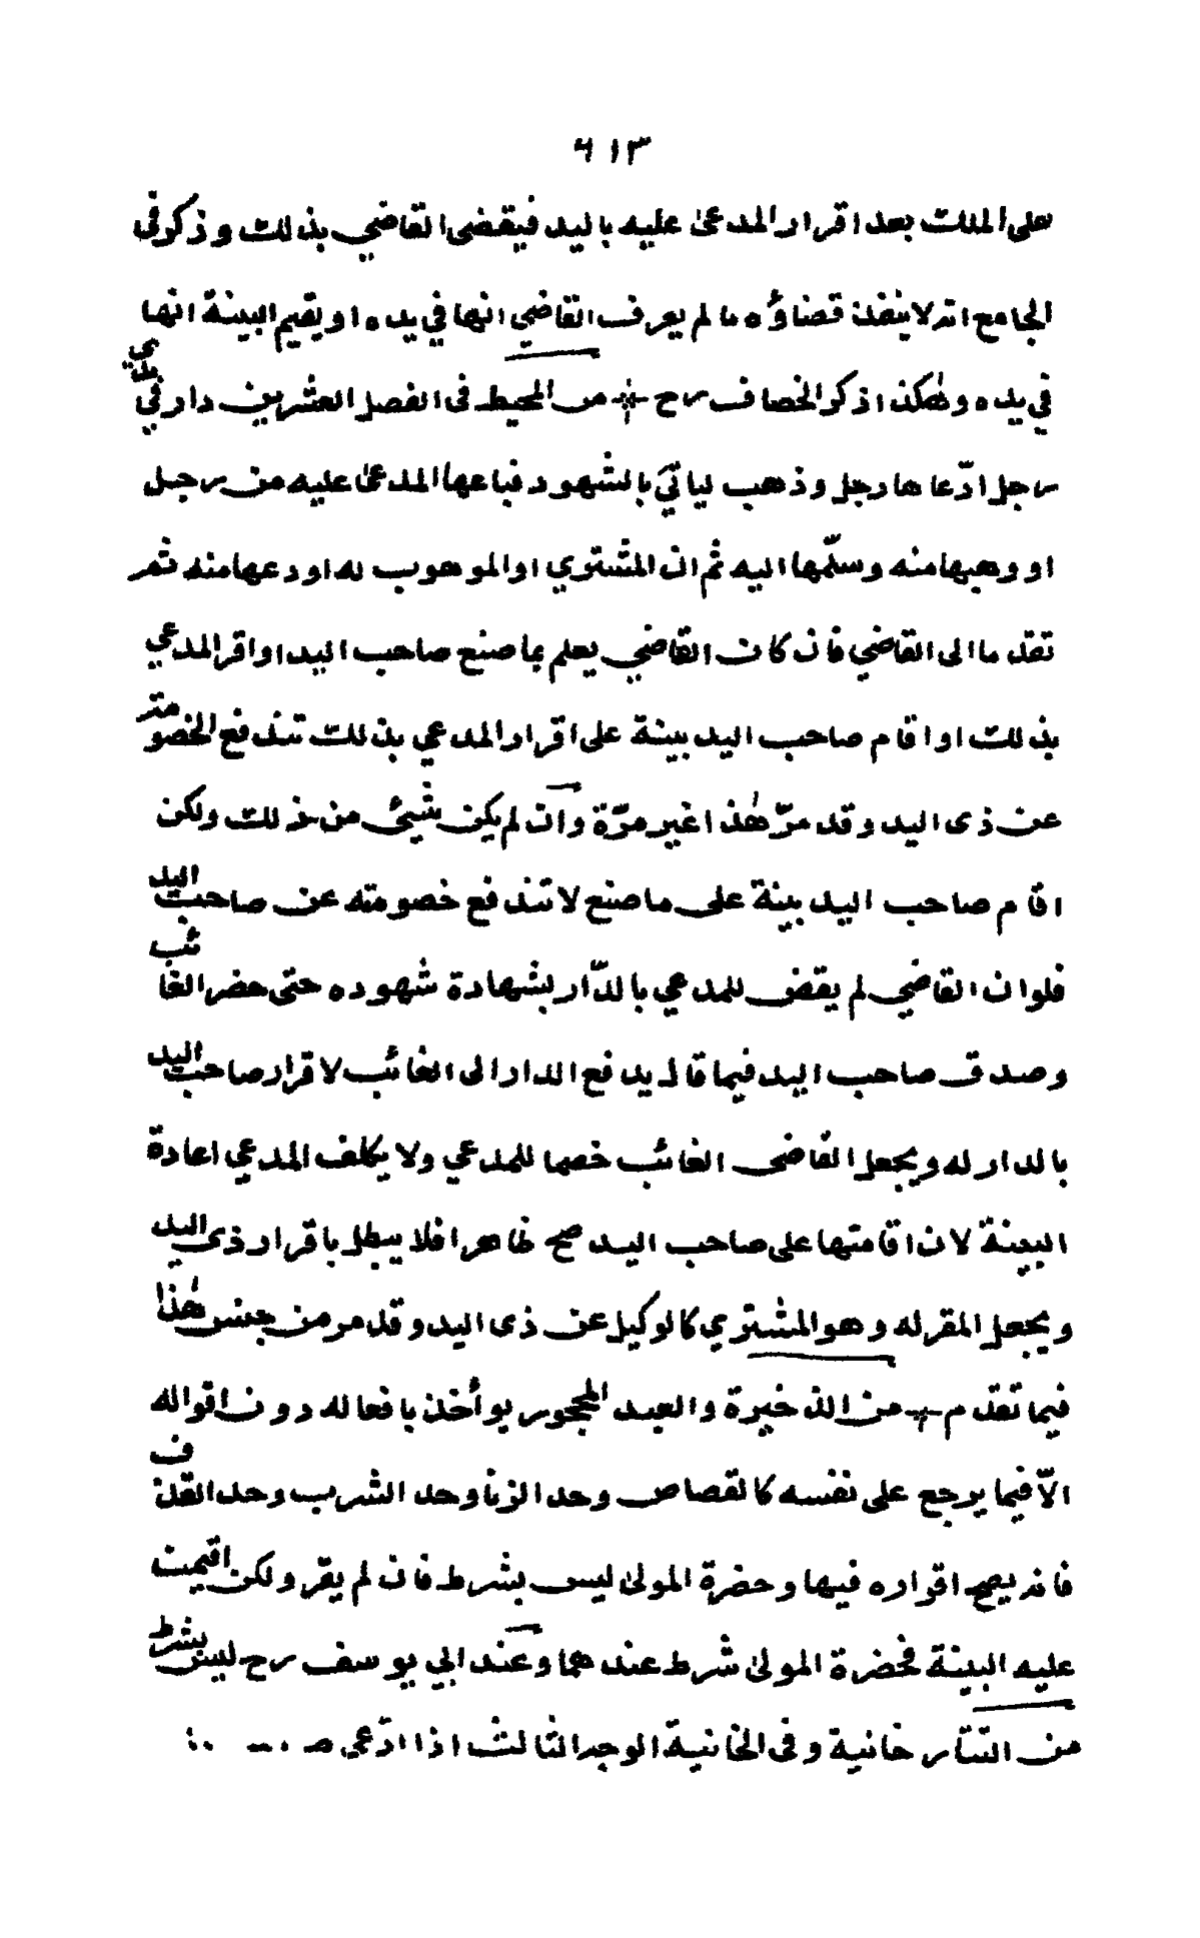 ٦١٣
على الملك بعد اقرار المدعى عليه باليد فيقضى القاضي بذلك وذكر فى
الجامع انه لا ينفذ قضاؤه ما لم يعرف القاضي انها في يده او يقيم البينة انها
في يده وهٰكذا ذكر الخصاف رح من المحيط فى الفصل العشرين دار في يدي
رجل ادّعاها رجل وذهب لياتيَ بالشهود فباعها المدعىٰ عليه من رجل
او وهبها منه وسلّمها اليه ثم ان المشتري او الموهوب له اودعها منه ثم
تقدما الى القاضي فان كان القاضي يعلم بما صنع صاحب اليد او اقر المدعي
بذلك او اقام صاحب اليد بينة على اقرار المدعي بذلك تندفع الخصومة
عن ذى اليد وقد مرّ هٰذا غير مرّة وان لم يكن شيئ من ذلك ولكن
اقام صاحب اليد بينة على ما صنع لا تندفع خصومته عن صاحب اليد
فلو ان القاضي لم يقض للمدعي بالدّار بشهادة شهوده حتى حضر الغائب
وصدق صاحب اليد فيما قال يدفع الدار الى الغائب لاقرار صاحب اليد
بالدار له ويجعل القاضى الغائب خصما للمدعي ولا يكلف المدعي اعادة
البينة لان اقامتها على صاحب اليد صح ظاهرا فلا يبطل باقرار ذى اليد
ويجعل المقر له وهو المشتري كالوكيل عن ذى اليد وقد مر من جنس هٰذا
فيما تقدم من الذخيرة والعبد المحجور يوأخذ بافعاله دون اقواله
الّا فيما يرجع على نفسه كالقصاص وحد الزنا وحد الشرب وحد القذف
فانه يصح اقراره فيها وحضرة المولىٰ ليس بشرط فان لم يقر ولكن اقيمت
عليه البينة فحضرة المولىٰ شرط عندهما وعند ابي يوسف رح ليس بشرط
من التتارخانية وفى الخانية الوجه الثالث اذا ادّعى